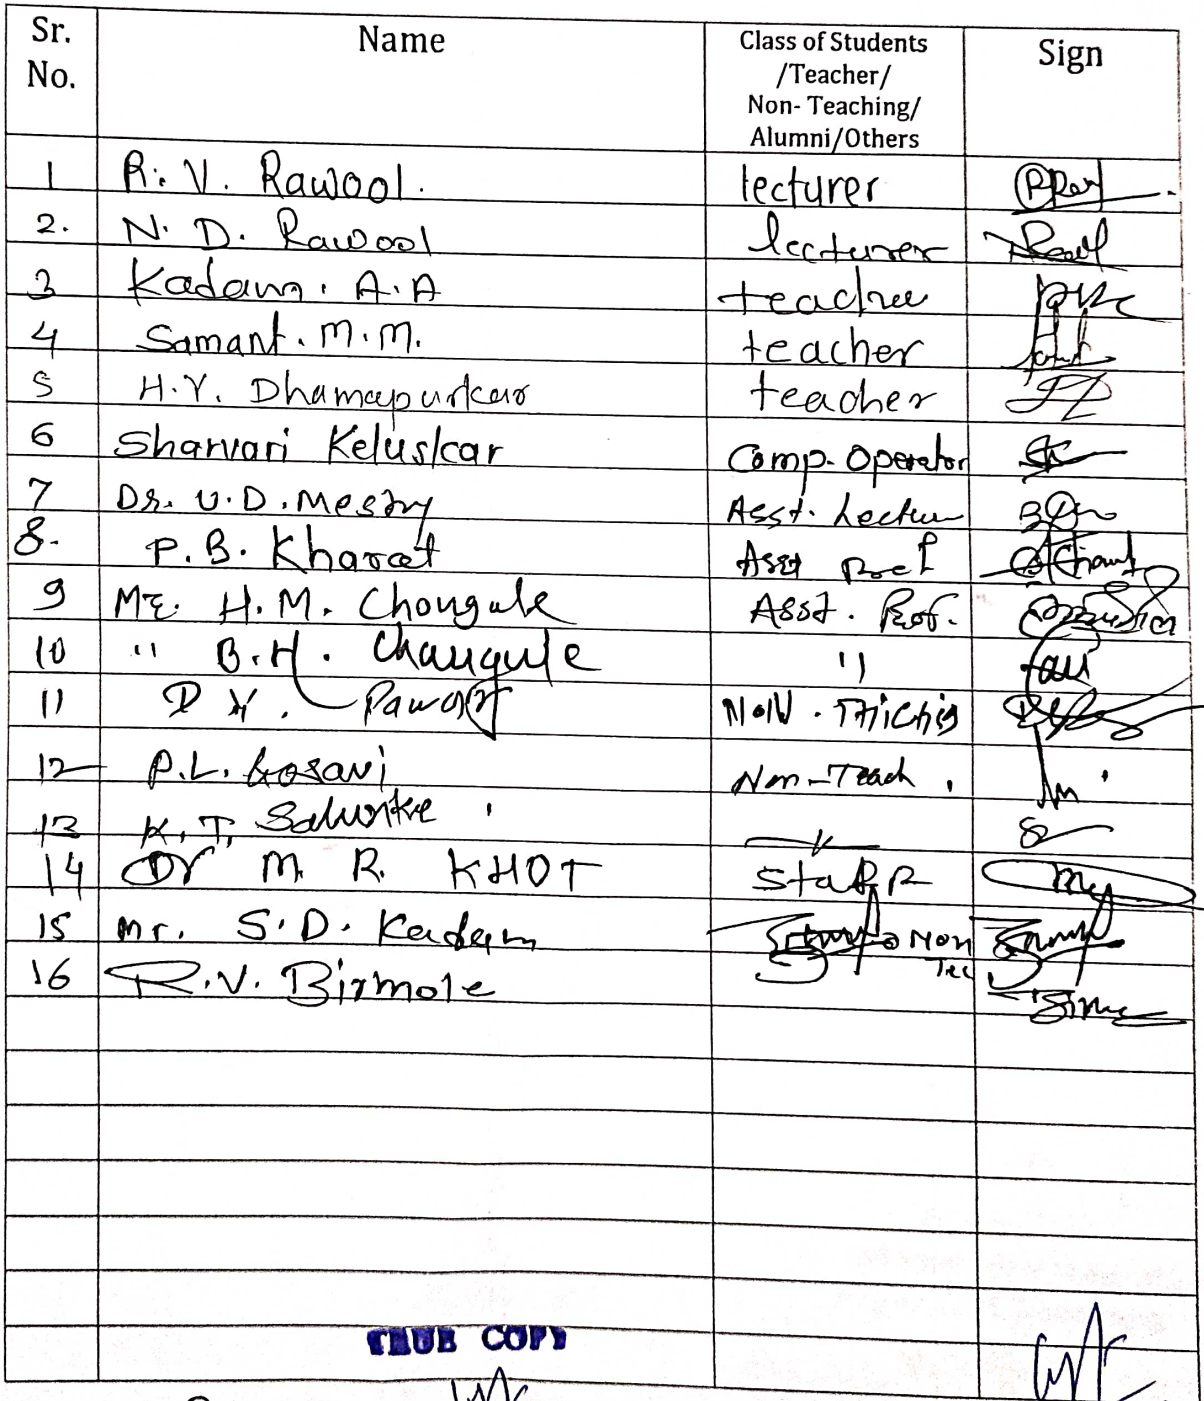 Sr. No. Name Class of Students /Teacher/ Non- Teaching/ Alumni/Others Sign
1 R. V. Rawool. lecturer
2. N. D. Rawool lecturer
3 Kadam. A.A teacher
4 Samant. M.M. teacher
5 H.Y. Dhamapurkar teacher
6 Sharvari Keluskar Comp. Operator
7 Dr. U.D. Mestry Asst. Lectur
8. P. B. Kharat Asst Prof
9 Mr. H.M. Chougule Asst. Prof.
10 " B.H. Chaugule "
11 D Y. Pawar Non. 
12 P.L. Gosavi Non-Teach.
13 K. T. Salunke
14 Dr M. R. KHOT staff
15 Mr. S.D. Kadam Non Tec
16 R.V. Birmole
TRUE COPY